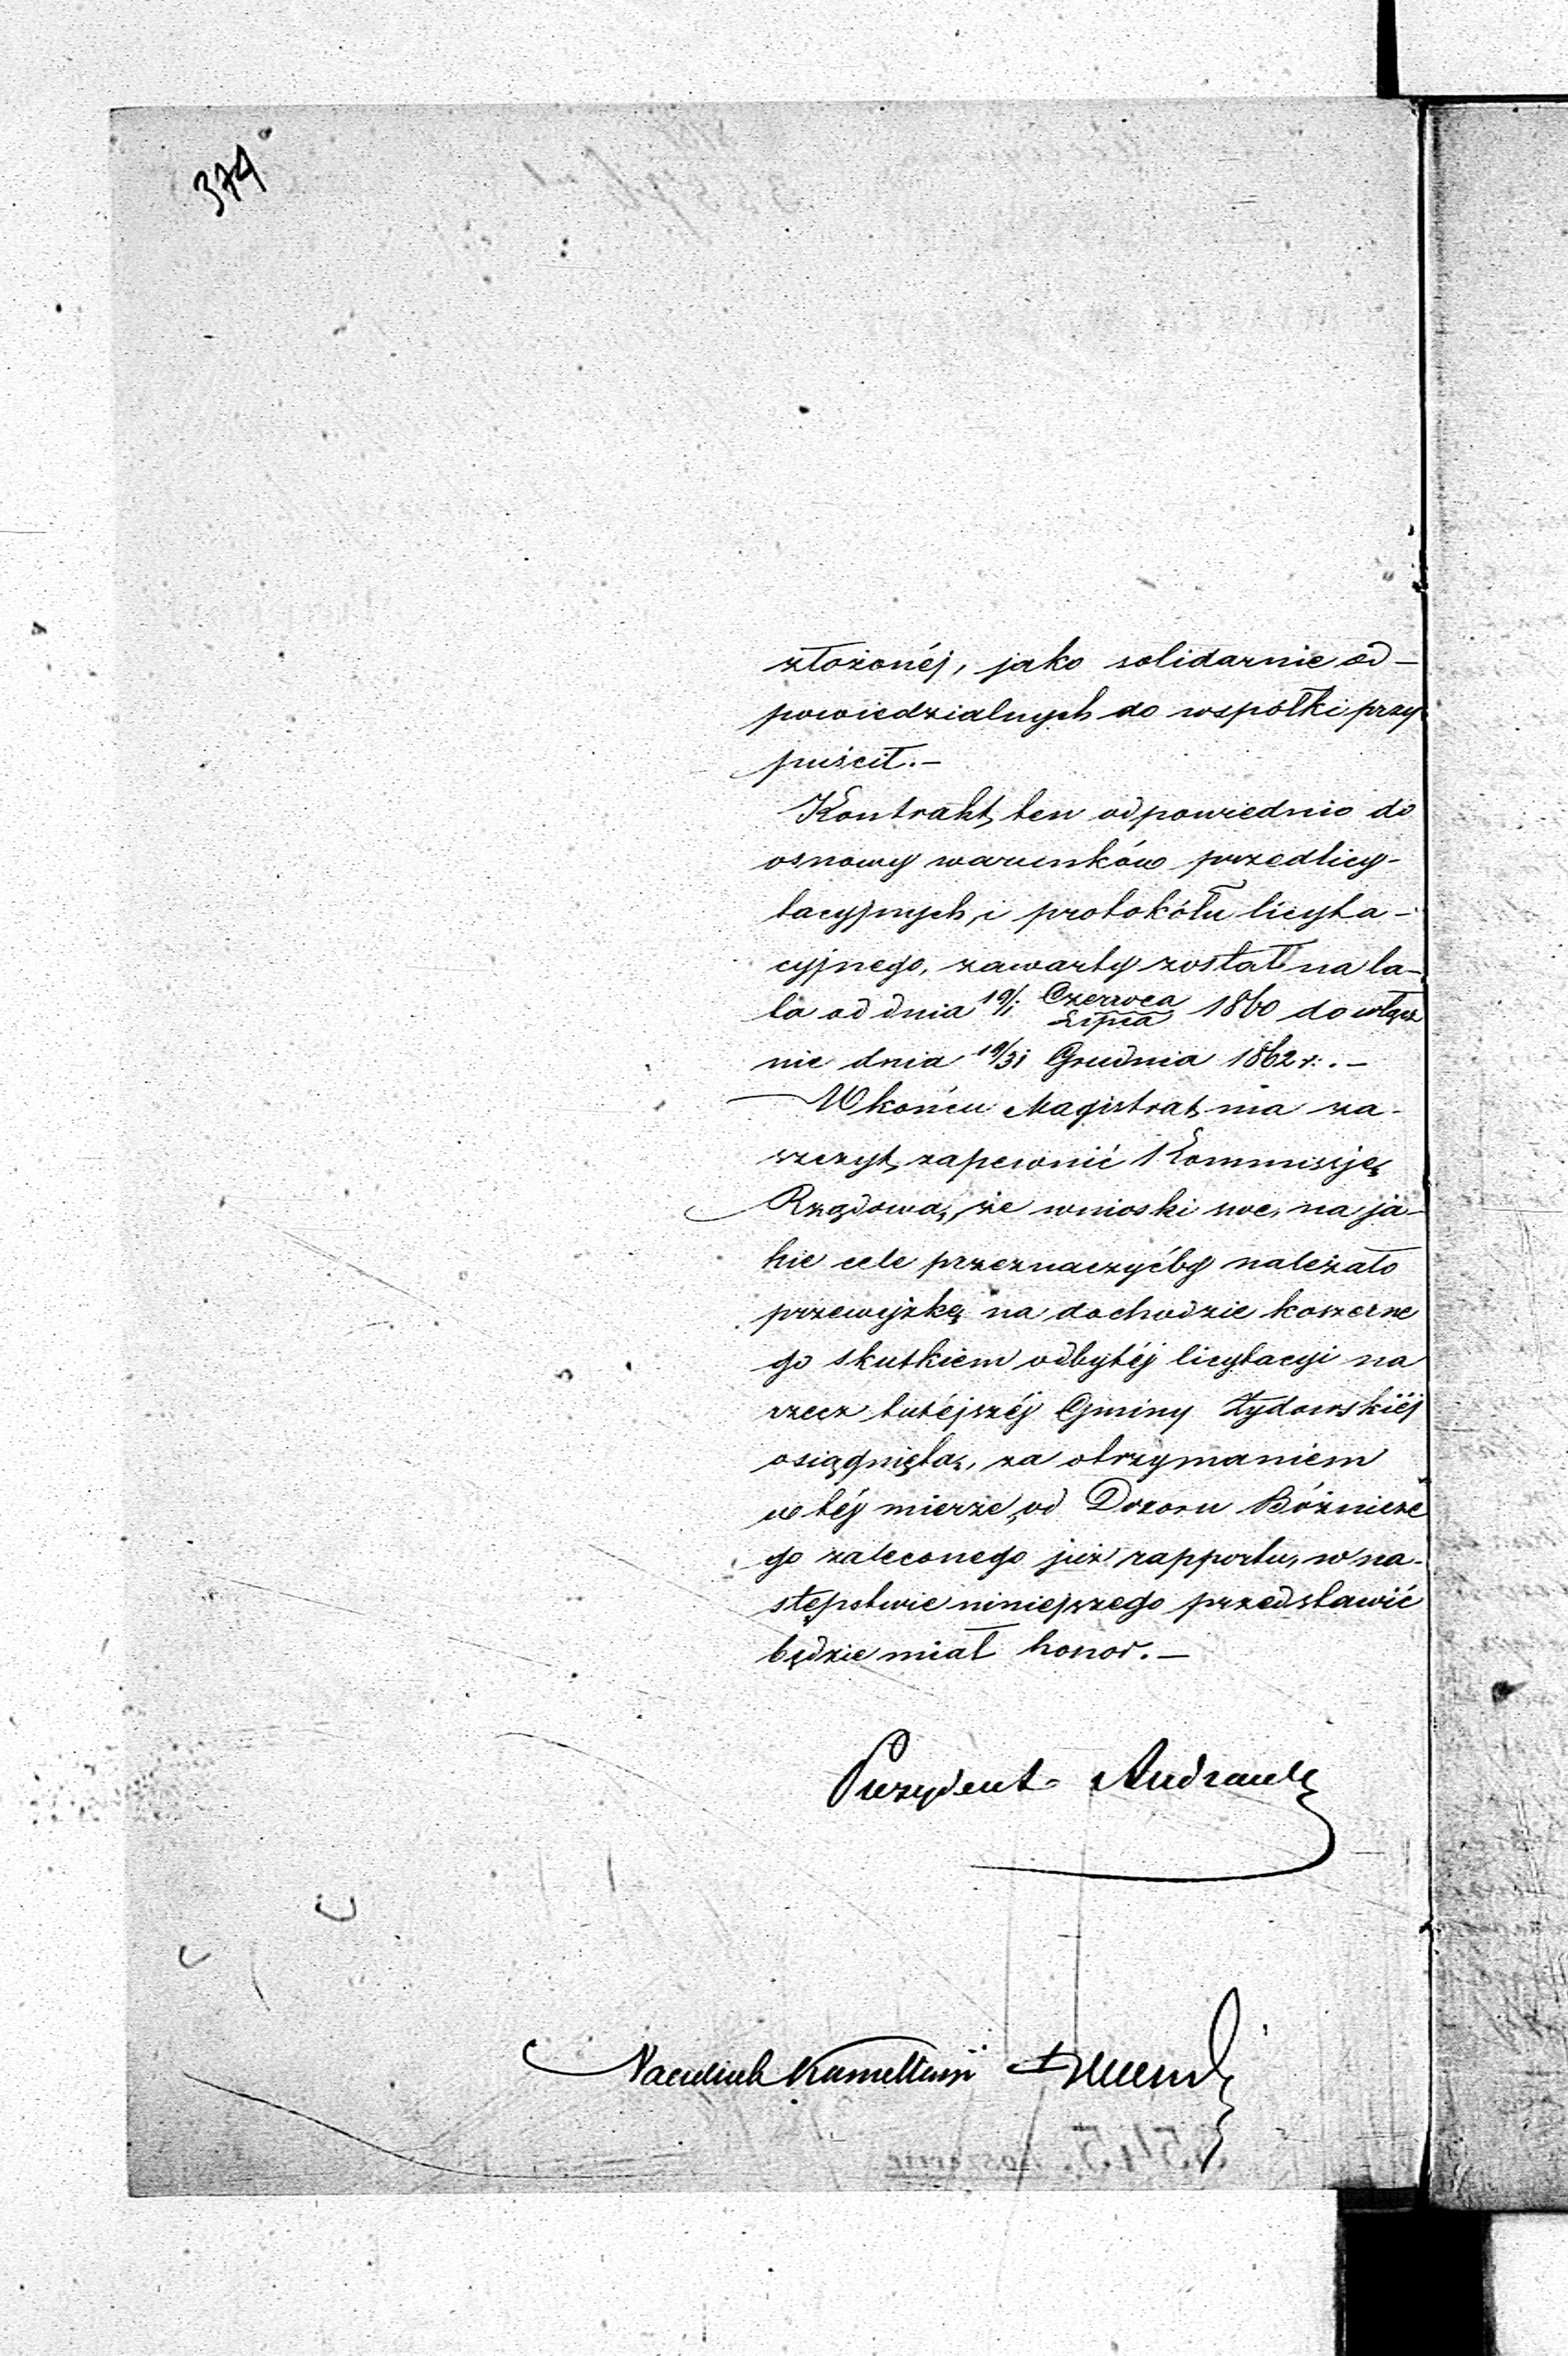 374
złożonéj, jako solidarnie od-
powiedzialnych do wspólki przy
puścił.-
Kontrakt ten odpowiednio do
osnowy warunków przedlicy-
tacyjnych i protokółu licyta-
cyjnego, zawarty został na la-
ta od dnia 19/1 Czerwca/Lipca 1860 do włącz
nie dnia 19/31 Grudnia 1862 r. .-
W końcu Magistrat ma za-
szczyt zapewnić Kommissję
Rządową, że wnioski swe, na ja-
kie cele przeznaczyćby należało
przewyżkę na dochodzie koszerne
go skutkiem odbytéj licytacyi na
rzecz tutéjszéj Gminy Żydowskiéj
osiągniętą, za otrzymaniem
w téj mierze od Dozoru Bóżnicze
go zaleconego już rapportu, w na-
stępstwie niniejszego przedstawić
będzie miał honor.-
Prezydent Andrault
Naczelnik Kancellaryi